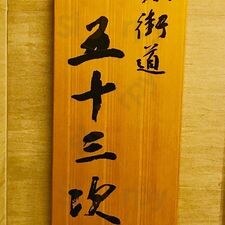 街道
五十三次